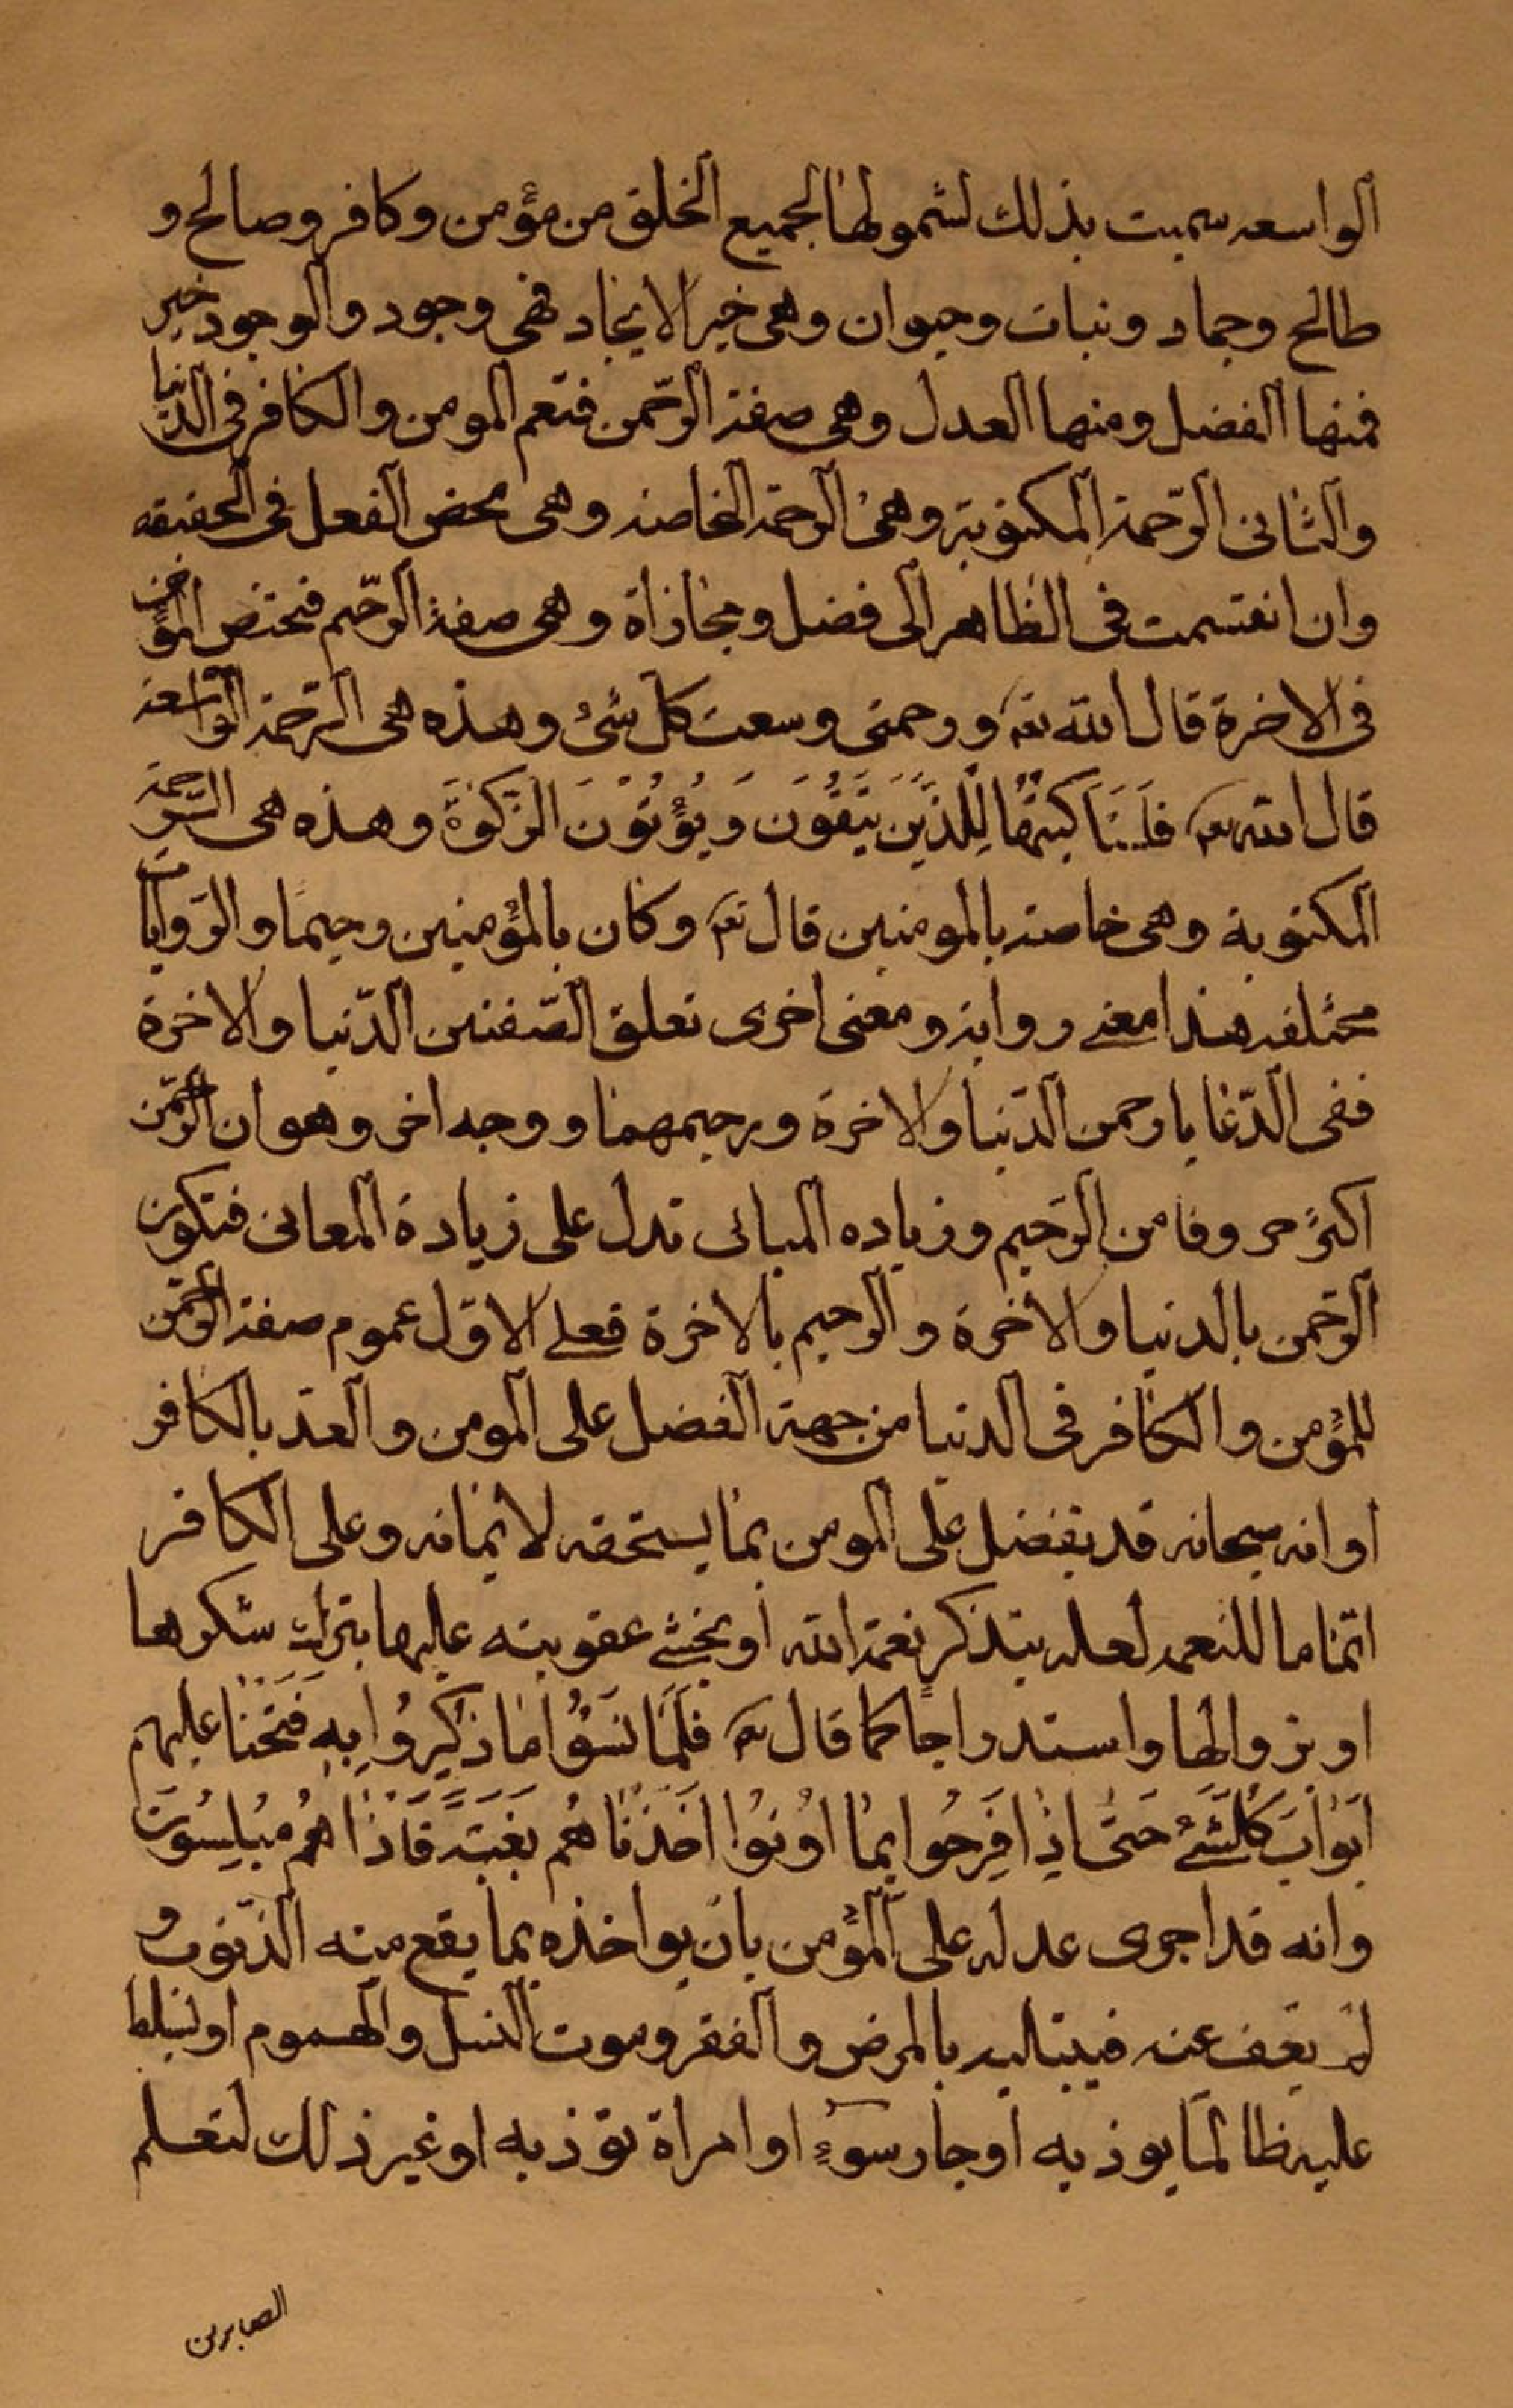 الواسعه سميت بذلك لشمولها لجميع الخلق من مؤمن وكافر وصالح و
طالح وجماد ونبات وحيوان وهى خير الايجاد فهى وجود والوجود خير
فمنها الفضل ومنها العدل وهى صفة الرّحمن فتعم المومن والكافر فى الدّنيا
والثانى الرّحمة المكتوبة وهى الرحمة الخاصة وهى محض الفعل فى الحقيقه
وان انقسمت فى الظاهر الى فضل ومجازاة وهى صفة الرّحيم فتختص المؤمن
فى الاخرة قال الله تعه ورحمتى وسعت كل شئ وهذه هى الرّحمة الواسعة
قال الله تعه فَلَسَنَاَكتبُهُا لِلَّذيَنَ يَتَقُوَنَ وَ يُؤْتُوْنَ الزّكَوةَ وهذه هى الرّحمة
المكتوبة وهى خاصة بالمومنين قال تعه وكان بالمؤمنين رحيمًا والرّوايات
مختلفه هذا معنى رواية ومعنى اخرى تعلق الصّفتين الدّنيا والاخرة
ففى الدّعا يا رحمن الدّنيا والاخرة ورحيمهما ووجه اخر وهو ان الرّحمن
اكثر حروفا من الرّحيم وزياده المبانى تدل على زيادة المعانى فتكون
الرّحمن بالدنيا والاخرة والرحيم بالاخرة فعلى الاوّل عموم صفة الرّحمن
للمؤمن والكافر فى الدنيا من جهة الفضل على المومن والعدل بالكافر
او انه سبحانه قد يفضل على المومن بما يستحقه لايمانه وعلى الكافر
اتماما للنعمه لعله يتذكر نعمة الله او يخشى عقوبته عليها بترك شكرها
او بزوالها واستدراجا كما قال تعه فَلَمَّا نَسَوُا ماَ ذُكِّيرُوا بِهِ فَتَحْنَا عليهم
اَبَوْابَ كُلِّشَىْءٍ حَتىَّ اِذا فَرِحُوا بِما اوُتوُا اَخَذْنَاهُم بَغْتَةً فَاِذَا هُم مُبْلِسُونَ
وانه قد اجرى عدله على المؤمن بان يواخذه بما يقع منه الذّنوب و
لم يعف عنه فيبتليه بالمرض والفقر وموت النسل والهموم او يسلط
عليه ظالما يوذيه او جار سوءٍ او امراة توذيه او غير ذلك لتعلم
الصابرين